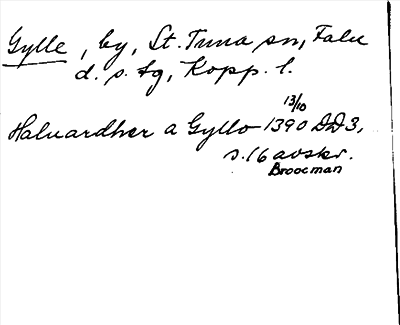 Gylle, by, St. Tuna sn, Falu
d. s. tg, Kopp. l.
13/10
Haluardher a Gyllo 1390 DD3,
s. 16 avskr.
Broocman